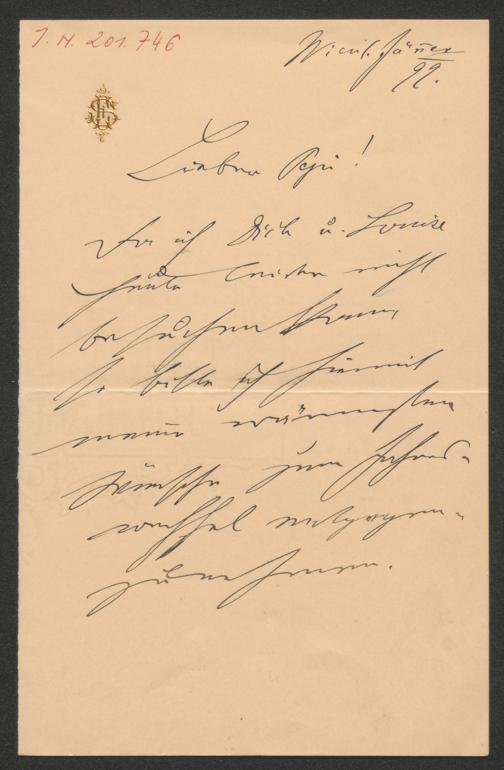 J. N. 201.746
Wien 1. Jänner
99.
Lieber Pepi!
Da ich Dich u. Louise
heute leider nicht
besuchen kann,
so bitte ich hiermit
meine wärmsten
Wünsche zum Jahres-
wechsel entgegen-
zunehmen.